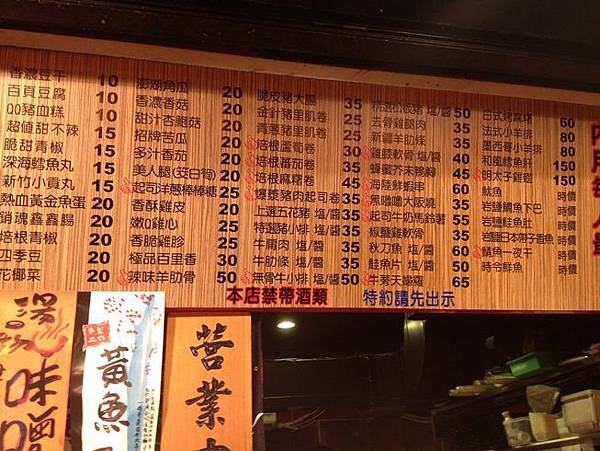 香濃豆干 10
百頁豆腐 10
QQ豬血糕 10
超值甜不辣 15
脆甜青椒 15
深海鱈魚丸 15
新竹小貢丸 15
熱血黃金魚蛋 20
銷魂鑫鑫腸 20
培根青椒 20
四季豆 20
花椰菜 20
澎湖角瓜 20
香濃香菇 20
甜汁香脆菇 20
招牌苦瓜 20
多汁香茄 20
美人腿(筊白筍) 20
起司洋蔥棒棒糖 25
香酥雞皮 20
嫩Q雞心 20
香脆雞胗 25
極品百里香 30
辣味羊肋骨 50
脆皮豬大腸 35
金針豬里肌卷 25
青蔥豬里肌卷 25
培根蘆筍卷 30
培根蕃茄卷 30
培根鳳梨卷 30
爆漿豬肉起司卷 35
上選五花豬 塩/醬 35
特選豬小排 塩/醬 35
牛肩肉 塩/醬 35
牛肋條 塩/醬 35
無骨牛小排 塩/醬 50
精選松阪豬 塩/醬 50
去骨雞腿肉 35
新疆羊肋條 35
雞膝軟骨 塩/麻 40
蜂蜜芥末鴨胸 45
岩塩鮮蝦串 60
黑嚕嚕大阪燒 35
起司牛奶馬鈴薯 55
椒鹽雞軟骨 35
秋刀魚 塩/醬 60
鮭魚片 塩/醬 50
牛蒡天婦羅 65
日式烤麻糬 60
法式小羊排 80
墨西哥小羊排 80
和風鱈魚肝 150
明太子雞翅 80
魷魚 時價
岩鹽鯛魚下巴 時價
岩鹽鮭魚肚 時價
岩鹽日本帶子香魚 時價
鯖魚一夜干 時價
時令鮮魚 時價
本店禁帶酒類 特約請先出示
味噌
黃魚
營業